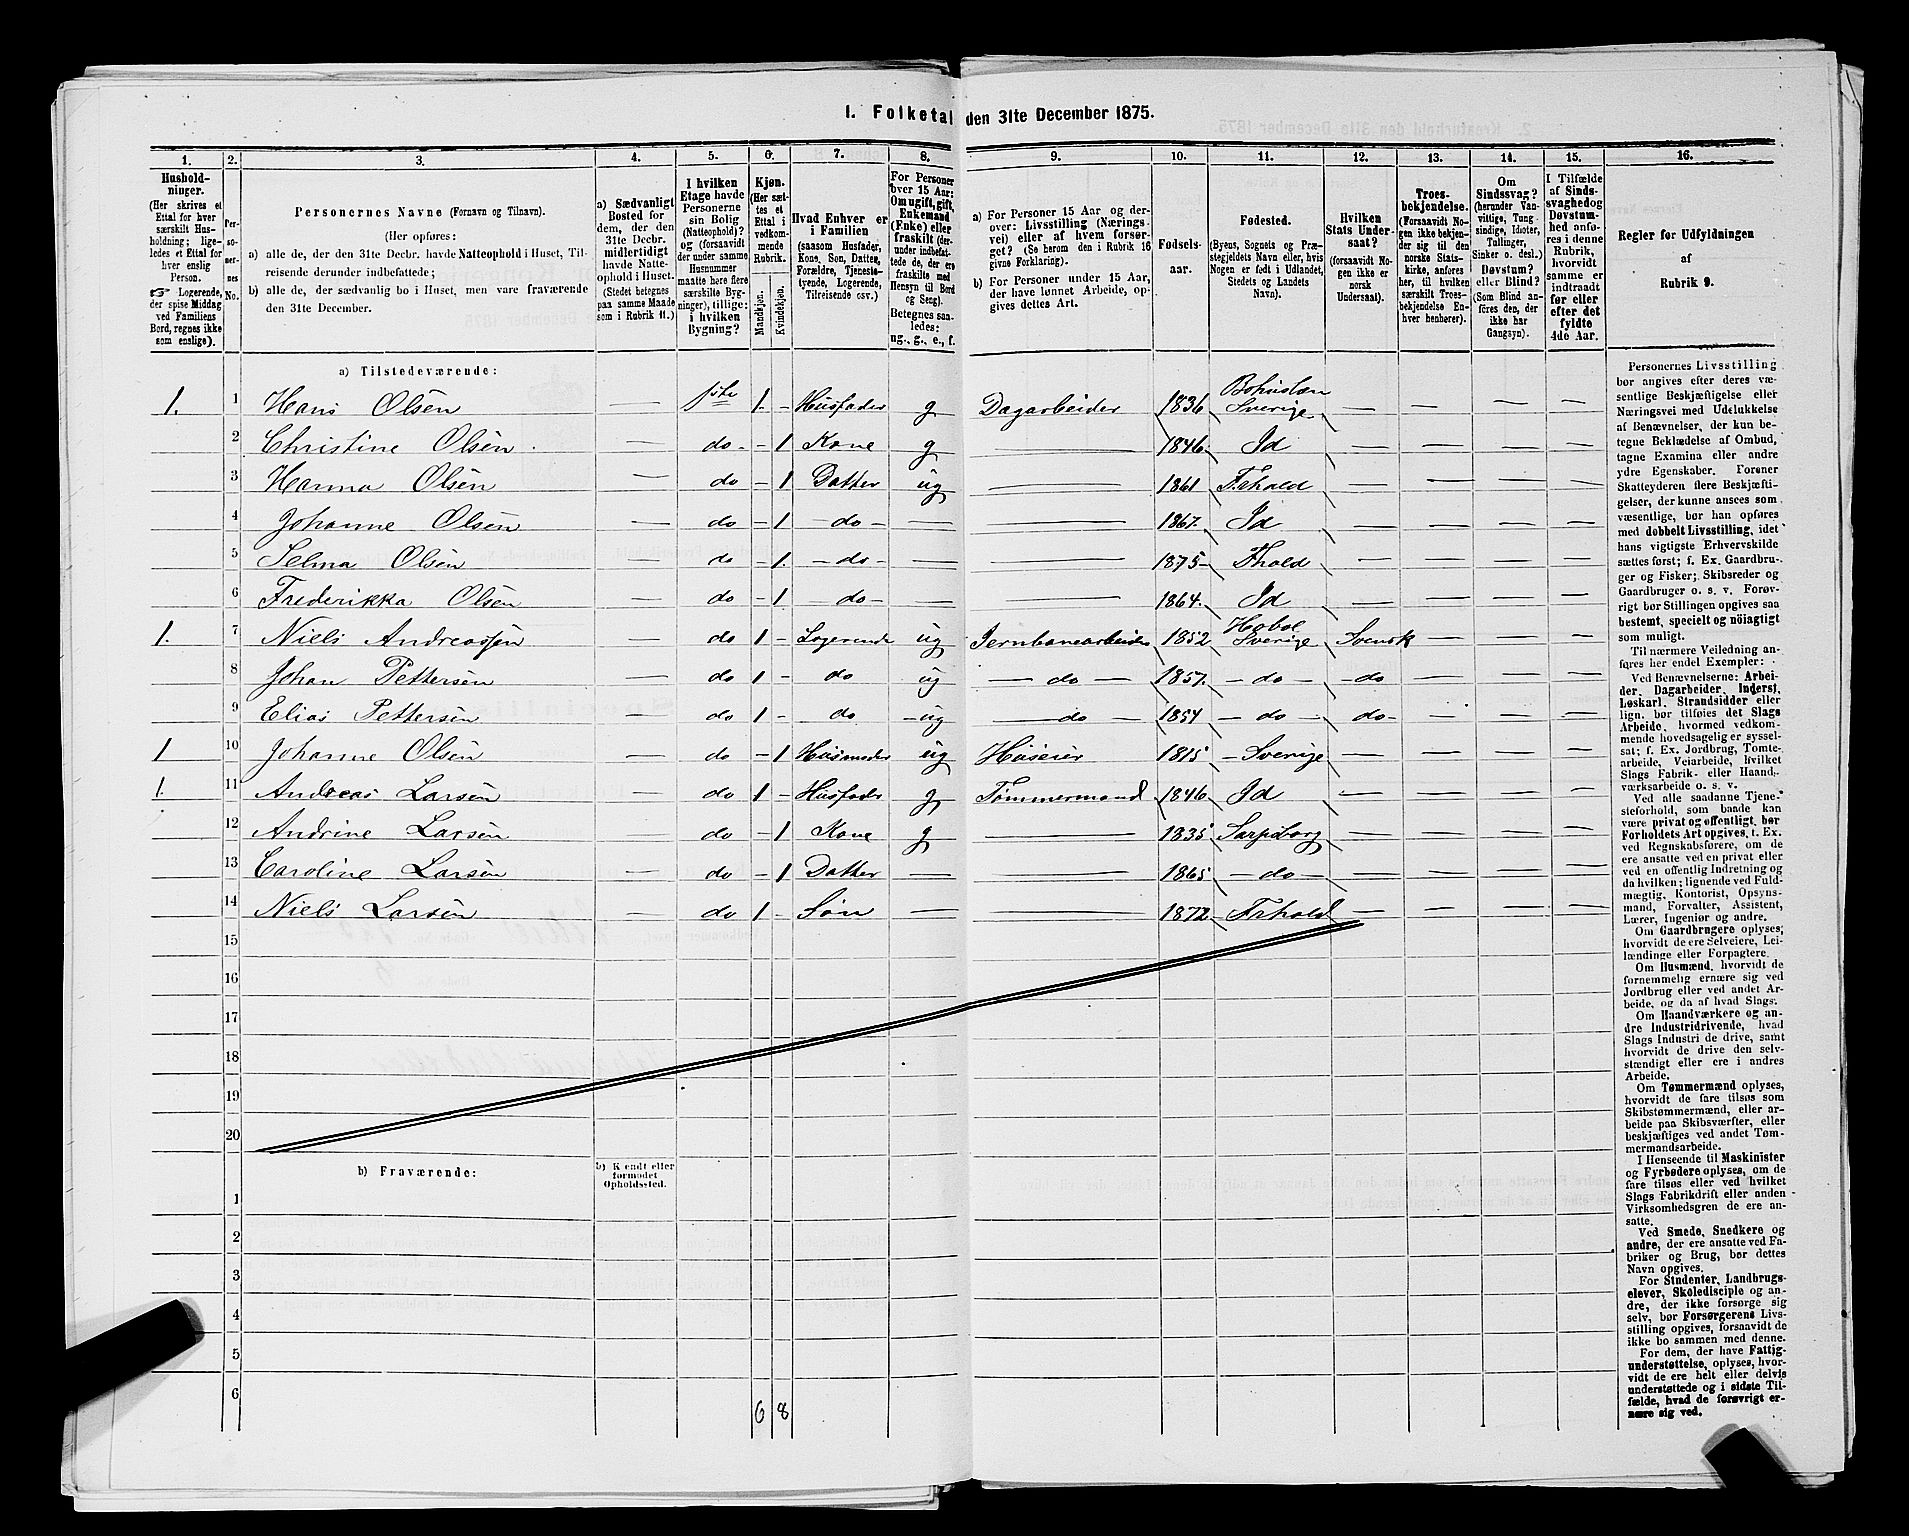 1. Folketal den 31te December 1875.
1. 2. 3. 4. 5. 6. 7. 8. 9. 10. 11. 12. 13. 14. 15. 16.
Hushold-
ninger.
(Her skrives et
Ettal for hver
særskilt Hus-
holdning; lige-
ledes et Ettal for
hver enslig
Person.
☞ Logerende,
der spise Middag
ved Familiens
Bord, regnes ikke
som enslige).
Per-
so-
ner-
nes
No.
Personernes Navne (Fornavn og Tilnavn).
(Her opføres:
a) alle de, der den 31te Decbr. havde Natteophold i Huset, Til-
reisende derunder indbefattede;
b) alle de, der sædvanlig bo i Huset, men vare fraværende
den 31te December.
a) Sædvanligt
Bosted for
dem, der den
31te Decbr.
midlertidigt
havde Natte-
ophold i Huset.
(Stedet betegnes
paa samme Maade
som i Rubrik 11.)
I hvilken
Etage havde
Personerne
sin Bolig
(Natteophold)?
og (forsaavidt
der under samme
Husnummer
maatte høre flere
særskilte Byg-
ninger), tillige:
i hvilken
Bygning?
Kjøn.
(Her sæt-
tes et
Ettal i
vedkom-
mende
Rubrik.
Mandkjøn.
Kvindekjøn.
Hvad Enhver er
i Familien
(saasom Husfader,
Kone, Søn, Datter,
Forældre, Tjeneste-
tyende, Logerende,
Tilreisende osv.)
For Personer
over 15 Aar:
Om ugift, gift,
Enkemand
(Enke) eller
fraskilt (der-
under indbefat-
tede de, der ere
fraskilte med
Hensyn til Bord
og Seng).
Betegnes saa-
ledes:
ug., g., e., f.
a) For Personer 15 Aar og der-
over: Livsstilling (Nærings-
vei) eller af hvem forsør-
get? (Se herom den i Rubrik 16
givne Forklaring).
b) For Personer under 15 Aar,
der have lønnet Arbeide, op-
gives dettes Art.
Fødsels-
aar.
Fødested.
(Byens, Sognets og Præ-
stegjeldets Navn eller, hvis
Nogen er født i Udlandet,
Stedets og Landets
Navn).
Hvilken
Stats Under-
saat?
(forsaavidt No-
gen ikke er
norsk
Undersaat).
Troes-
bekjendelse.
(Forsaavidt No-
gen ikke bekjen-
der sig til den
norske Stats-
kirke, anføres
her, til hvilken
særskilt Troes-
bekjendelse En-
hver henhører).
Om
Sindssvag?
(herunder Van-
vittige, Tung-
sindige, Idioter,
Tullinger,
Sinker o. desl.)
Døvstum?
eller Blind?
(Som Blind an-
føres den, der
ikke har
Gangsyn).
I Tilfælde
af Sinds-
svaghed og
Døvstum-
hed anfø-
res i denne
Rubrik,
hvorvidt
samme er
indtraadt
før eller
efter det
fyldte
4de Aar.
Regler for Udfyldningen
af
Rubrik 9.
a) Tilstedeværende:
1. 1 Hans Olsen — 1ste 1. – Husfader g Dagarbeider 1836 Bohuslæn Sverige — — — —
2 Christine Olsen — do – 1 Kone g — 1846 Id — — — —
3 Hanna Olsen — do – 1 Datter ug — 1861 F.hald — — — —
4 Johanne Olsen — do – 1 – do – — — 1867. Id — — — —
5 Selma Olsen — do – 1. – do – — — 1875 F.hald — — — —
6 Frederikka Olsen — do – 1 do – — — 1864. Id — — — —
1. 7 Niels Andreassen — do 1 – Logerende ug Jernbanearbeider 1852 Sverige Svensk — — —
8 Johan Pettersen — do 1 – do ug — do — 1857. – do – – do — — —
9 Elias Pettersen — do 1 – do – ug — do — 1854 – do – do – — — —
1 10 Johanne Olsen — do – 1 Husmoder ug Huseier 1815 – Sverige — — — —
1. 11 Andreas Larsen — do 1 – Husfader g Tømmermand 1846 Id — — — —
12 Andrine Larsen — do – 1 Kone g — 1835 Sarpsborg — — — —
13 Caroline Larsen — do – 1 Datter — — 1865 – do – — — — —
14 Niels Larsen — do 1 – Søn — — 1872 – Frhald — — — —
15
16
17
18
19
20
b) Fraværende:
b) Kjendt eller
formodet
Opholdssted.
1
2
3
4
5
6
6 8
Personernes Livsstilling
bør angives efter deres væ-
sentlige Beskjæftigelse eller
Næringsvei med Udelukkelse
af Benævnelser, der kun be-
tegne Beklædelse af Ombud,
tagne Examina eller andre
ydre Egenskaber. Forener
Skatteyderen flere Beskjæfti-
gelser, der kunne ansees som
væsentlige, bør han opføres
med dobbelt Livsstilling, idet
hans vigtigste Erhvervskilde
sættes først; f. Ex. Gaardbru-
ger og Fisker; Skibsreder og
Gaardbruger o. s. v. Forøv-
rigt bør Stillingen opgives saa
bestemt, specielt og nøiagtigt
som muligt.
Til nærmere Veiledning an-
føres her endel Exempler:
Ved Benævnelserne: Arbei-
der, Dagarbeider, Inderst,
Løskarl, Strandsidder eller
lign. bør tilføies det Slags
Arbeide, hvormed vedkom-
mende hovedsagelig er syssel-
sat; f. Ex. Jordbrug, Tomte-
arbeide, Veiarbeide, hvilket
Slags Fabrik- eller Haand-
værksarbeide o. s. v.
Ved alle saadanne Tjene-
steforhold, som baade kan
være privat og offentligt, bør
Forholdets Art opgives, t. Ex.
ved Regnskabsførere, om de
ere ansatte ved en privat eller
ved en offentlig Indretning og
da hvilken; lignende ved Fuld-
mægtig, Kontorist, Opsyns-
mand, Forvalter, Assistent,
Lærer, Ingeniør og andre.
Om Gaardbrugere oplyses,
hvorvidt de ere Selveiere, Lei-
lændinge eller Forpagtere.
Om Husmænd, hvorvidt de
fornemmelig ernære sig ved
Jordbrug eller ved andet Ar-
beide, og da af hvad Slags.
Om Haandværkere og an-
dre Industridrivende, hvad
Slags Industri de drive, samt
hvorvidt de drive den selv-
stændigt eller ere i andres
Arbeide.
Om Tømmermænd oplyses,
hvorvidt de fare tilsøs som
Skibstømmermænd, eller ar-
beide paa Skibsværfter, eller
beskjæftiges ved andet Tøm-
mermandsarbeide.
I Henseende til Maskinister
og Fyrbødere oplyses, om de
fare tilsøs eller ved hvilket
Slags Fabrikdrift eller anden
Virksomhedsgren de ere an-
satte.
Ved Smede, Snedkere og
andre, der ere ansatte ved Fa-
briker og Brug, bør dettes
Navn opgives.
For Studenter, Landbrugs-
elever, Skoledisciple og an-
dre, der ikke forsørge sig
selv, bør Forsørgerens Livs-
stilling opgives, forsaavidt de
ikke bo sammen med denne.
For dem, der have Fattig-
understøttelse, oplyses, hvor-
vidt de ere helt eller delvis
understøttede og i sidste Til-
fælde, hvad de forøvrigt er-
nære sig ved.